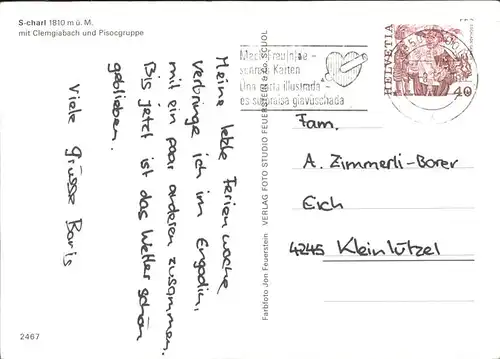 S-charl 1810 m ü. M.
mit Clemgiabach und Pisocgruppe
Meine letzte Ferienwoche
verbringe ich im Engadin,
mit ein paar anderen zusammen.
Bis jetzt ist das Wetter schön
geblieben.
Viele Grüsse Boris
2467
Farbfoto Jon Feuerstein VERLAG FOTO STUDIO FEUERSTEIN SCUOL
Mach Freu(n)de -
schreib Karten
Una carta illustrada -
es surpraisa giavüschada
HELVETIA
40
Fam.
A. Zimmerli-Borer
Eich
4245 Kleinlützel